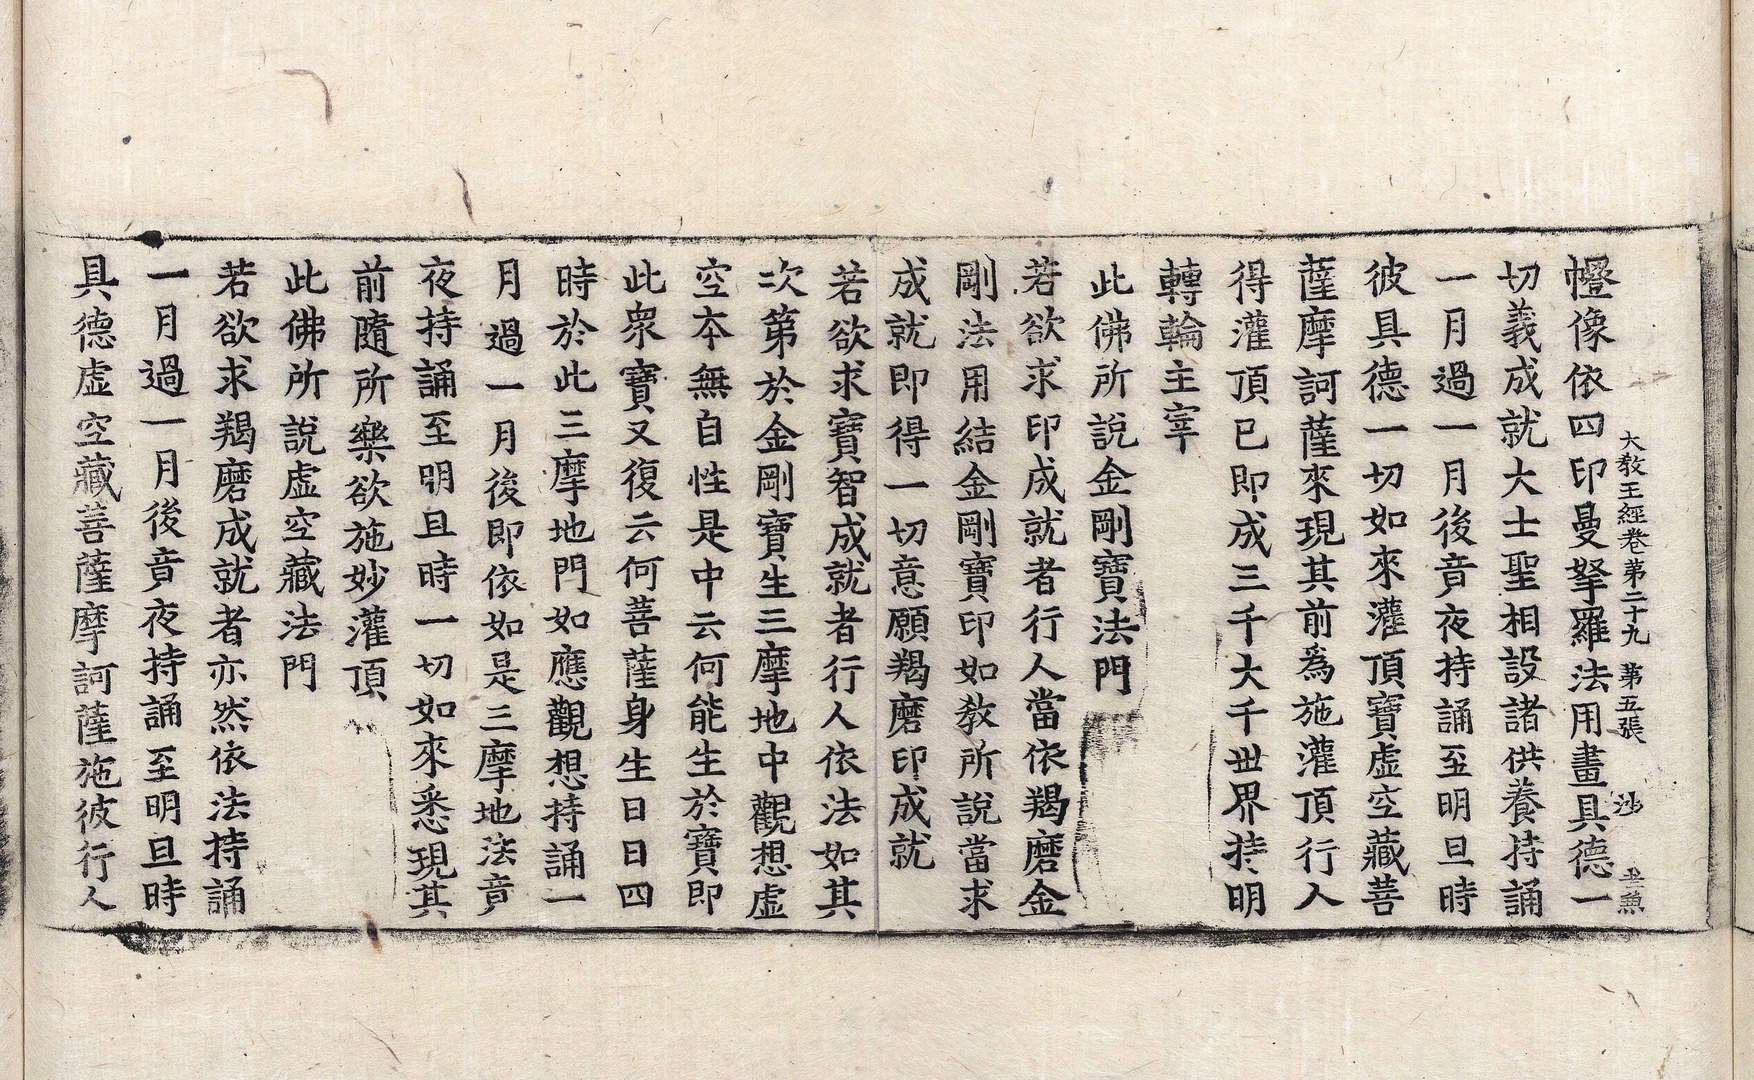 大教王經卷第二十九 第五張 沙
㡧像依四印曼拏羅法用畫具德一
切義成就大士聖相設諸供養持誦
一月過一月後竟夜持誦至明旦時
彼具德一切如來灌頂寶虛空藏菩
薩摩訶薩來現其前爲施灌頂行人
得灌頂已即成三千大千世界持明
轉輪主宰
此佛所說金剛寶法門
若欲求印成就者行人當依羯磨金
剛法用結金剛寶印如教所說當求
成就即得一切意願羯磨印成就
若欲求寶智成就者行人依法如其
次第於金剛寶生三摩地中觀想虛
空本無自性是中云何能生於寶即
此衆寶又復云何菩薩身生日日四
時於此三摩地門如應觀想持誦一
月過一月後即依如是三摩地法竟
夜持誦至明旦時一切如來悉現其
前隨所樂欲施妙灌頂
此佛所說虛空藏法門
若欲求羯磨成就者亦然依法持誦
一月過一月後竟夜持誦至明旦時
具德虛空藏菩薩摩訶薩施彼行人